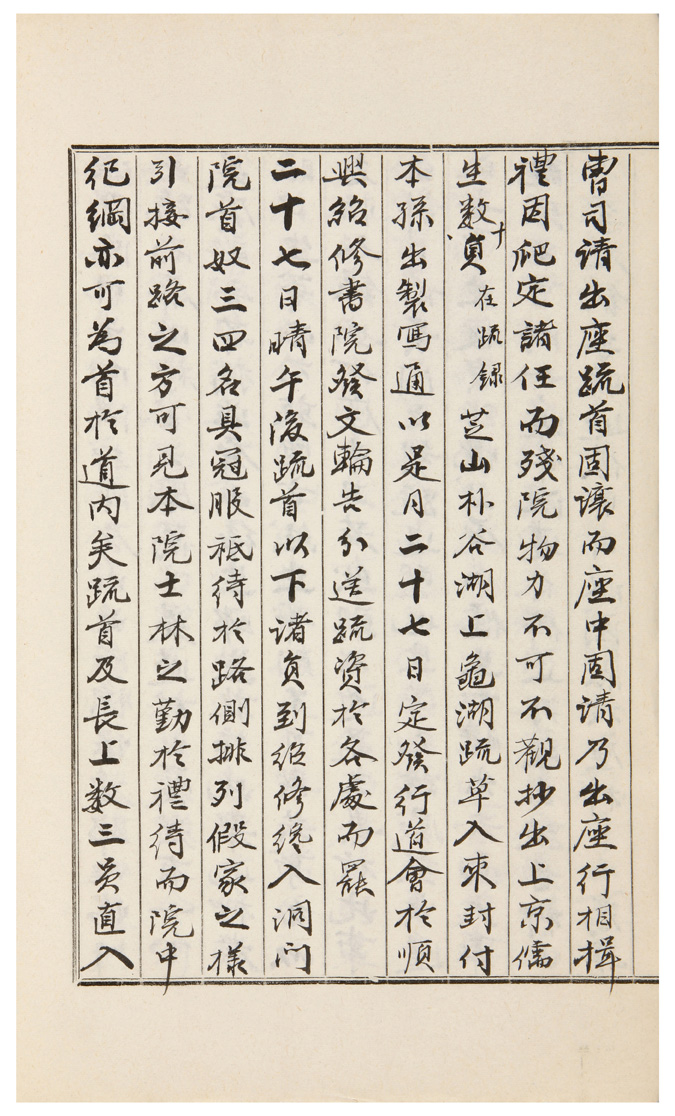 曺司請出座疏首固讓而座中固請乃出座行相揖
禮因爬定諸任而殘院物力不可不觀抄出上京儒
生数十員在疏録芝山朴谷湖上龜湖疏草入来封付
本孫出製寫通以是月二十七日定發行道會於順
興紹修書院發文輪告分送疏資於各處而罷
二十七日晴午後疏首以下諸員到紹修纔入洞門
院首奴三四名具冠服祗待於路側排列假家之樣
引接前路之方可見本院士林之勤於禮待而院中
紀綱亦可為首於道內矣疏首及長上数三員直入